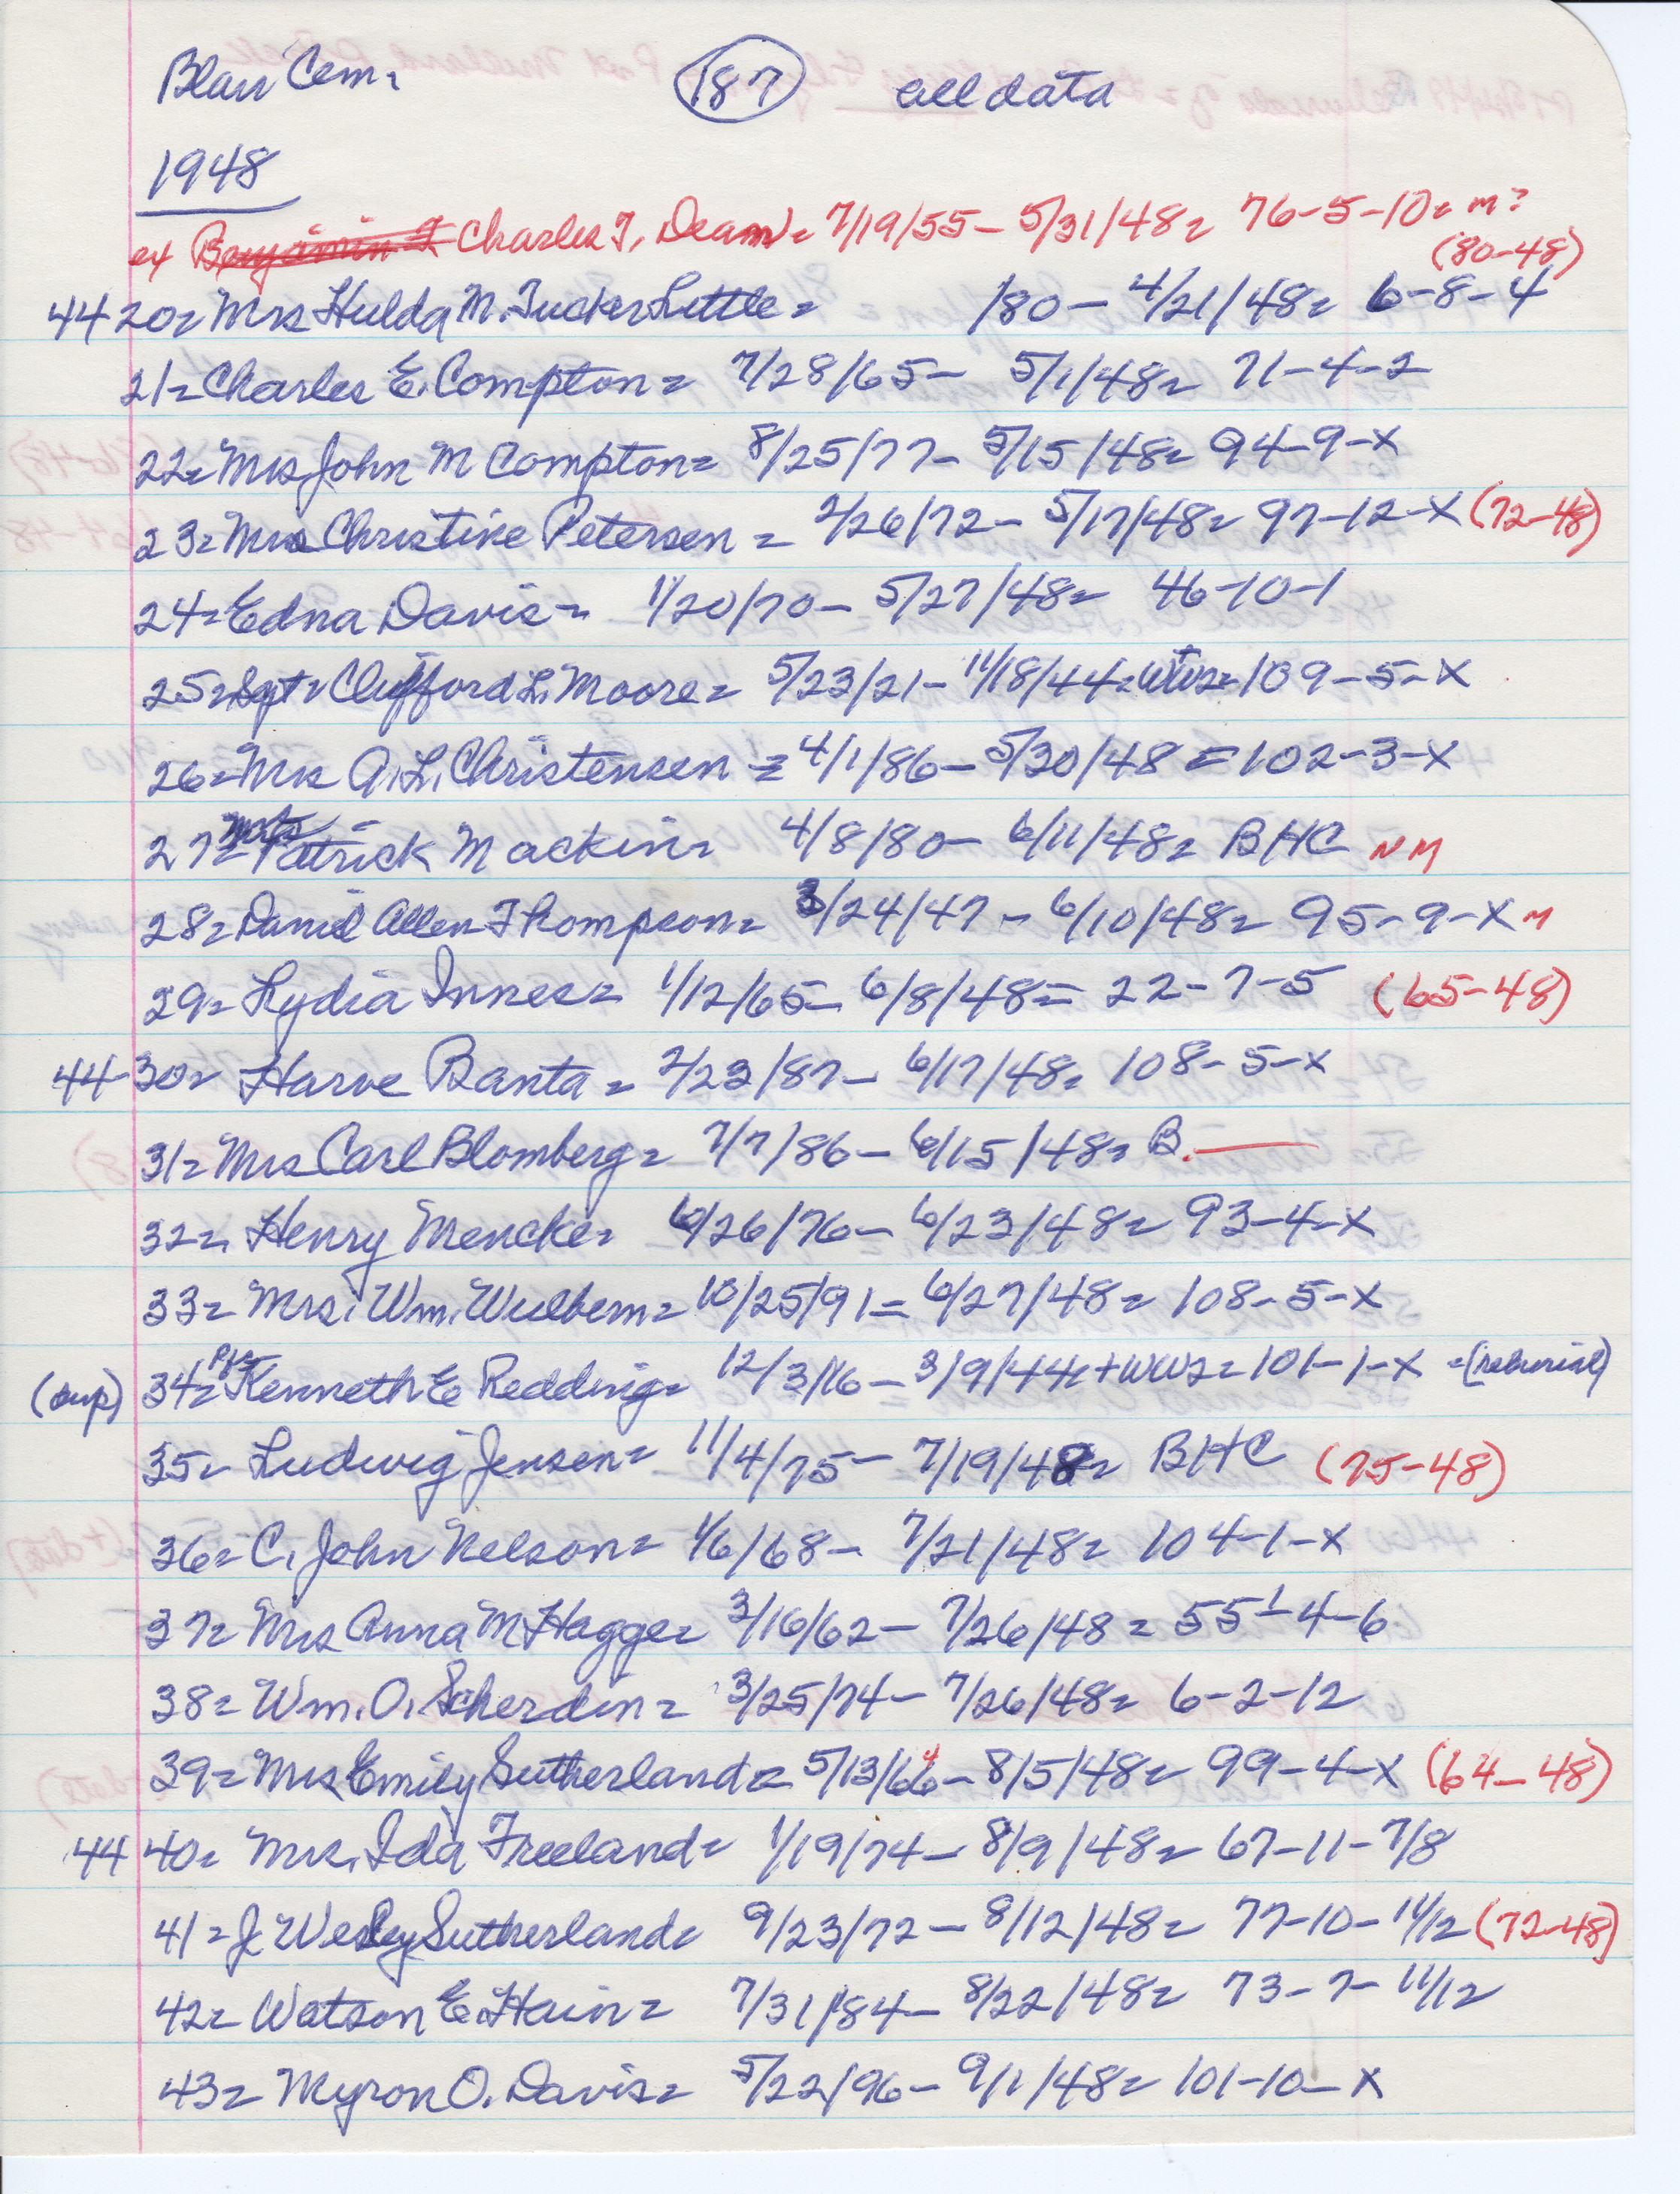 Blair Cem.
187
all data
1948
ex Benjamin F Charles T. Dean = 7/19/55 - 5/31/48 = 76-5-10 = M?
(80-48)
4420 = Mrs Hulda M. Tucker Little = /80 - 4/21/48 = 6-8-4
21 = Charles E. Compton = 7/28/65 - 5/1/48 = 71-4-2
22 = Mrs John M Compton = 8/25/77 - 5/15/48 = 94-9-X
23 = Mrs Christine Petersen = 2/26/72 - 5/17/48 = 97-12-X (72-48)
24 = Edna Davis = 11/20/70 - 5/27/48 = 46-10-1
25 = Sgt = Clifford L. Moore = 5/23/21 - 11/18/44 = WW2 = 109-5-X
26 = Mrs A. L. Christensen = 4/1/86 - 5/30/48 = 102-3-X
27 = Patrick Mackin = 4/8/80 - 6/11/48 = BHC NM
28 = Daniel Allen Thompson = 3/24/47 - 6/10/48 = 95-9-X M
29 = Lydia Innes = 1/12/65 - 6/8/48 = 22-7-5 (65-48)
44-30 = Harve Banta = 2/23/87 - 6/17/48 = 108-5-X
31 = Mrs Carl Blomberg = 7/7/86 - 6/15/48 = B.
32 = Henry Mencke = 6/26/76 - 6/23/48 = 93-4-X
33 = Mrs. Wm. Wulbern = 10/25/91 = 6/27/48 = 108-5-X
(sup) 34 = Pfc Kenneth E Redding = 12/3/16 - 3/9/44 = + WW2 = 101-1-X = (reburial)
35 = Ludwig Jensen = 11/4/75 - 7/19/48 = BHC (75-48)
36 = C. John Nelson = 1/6/68 - 7/21/48 = 104-1-X
37 = Mrs Anna M Hagge = 3/16/62 - 7/26/48 = 55-4-6
38 = Wm. O. Scherdin = 3/25/74 - 7/26/48 = 6-2-12
39 = Mrs Emily Sutherland = 5/13/66 4 - 8/5/48 = 99-4-X (64-48)
44 40 = Mrs. Ida Freeland = 1/19/74 - 8/9/48 = 67-11-7/8
41 = J. Wesley Sutherland = 9/23/72 - 8/12/48 = 77-10-11/2 (72-48)
42 = Watson E. Hain = 7/31/84 - 8/22/48 = 73-7-11/12
43 = Myron O. Davis = 5/22/96 - 9/1/48 = 101-10-X